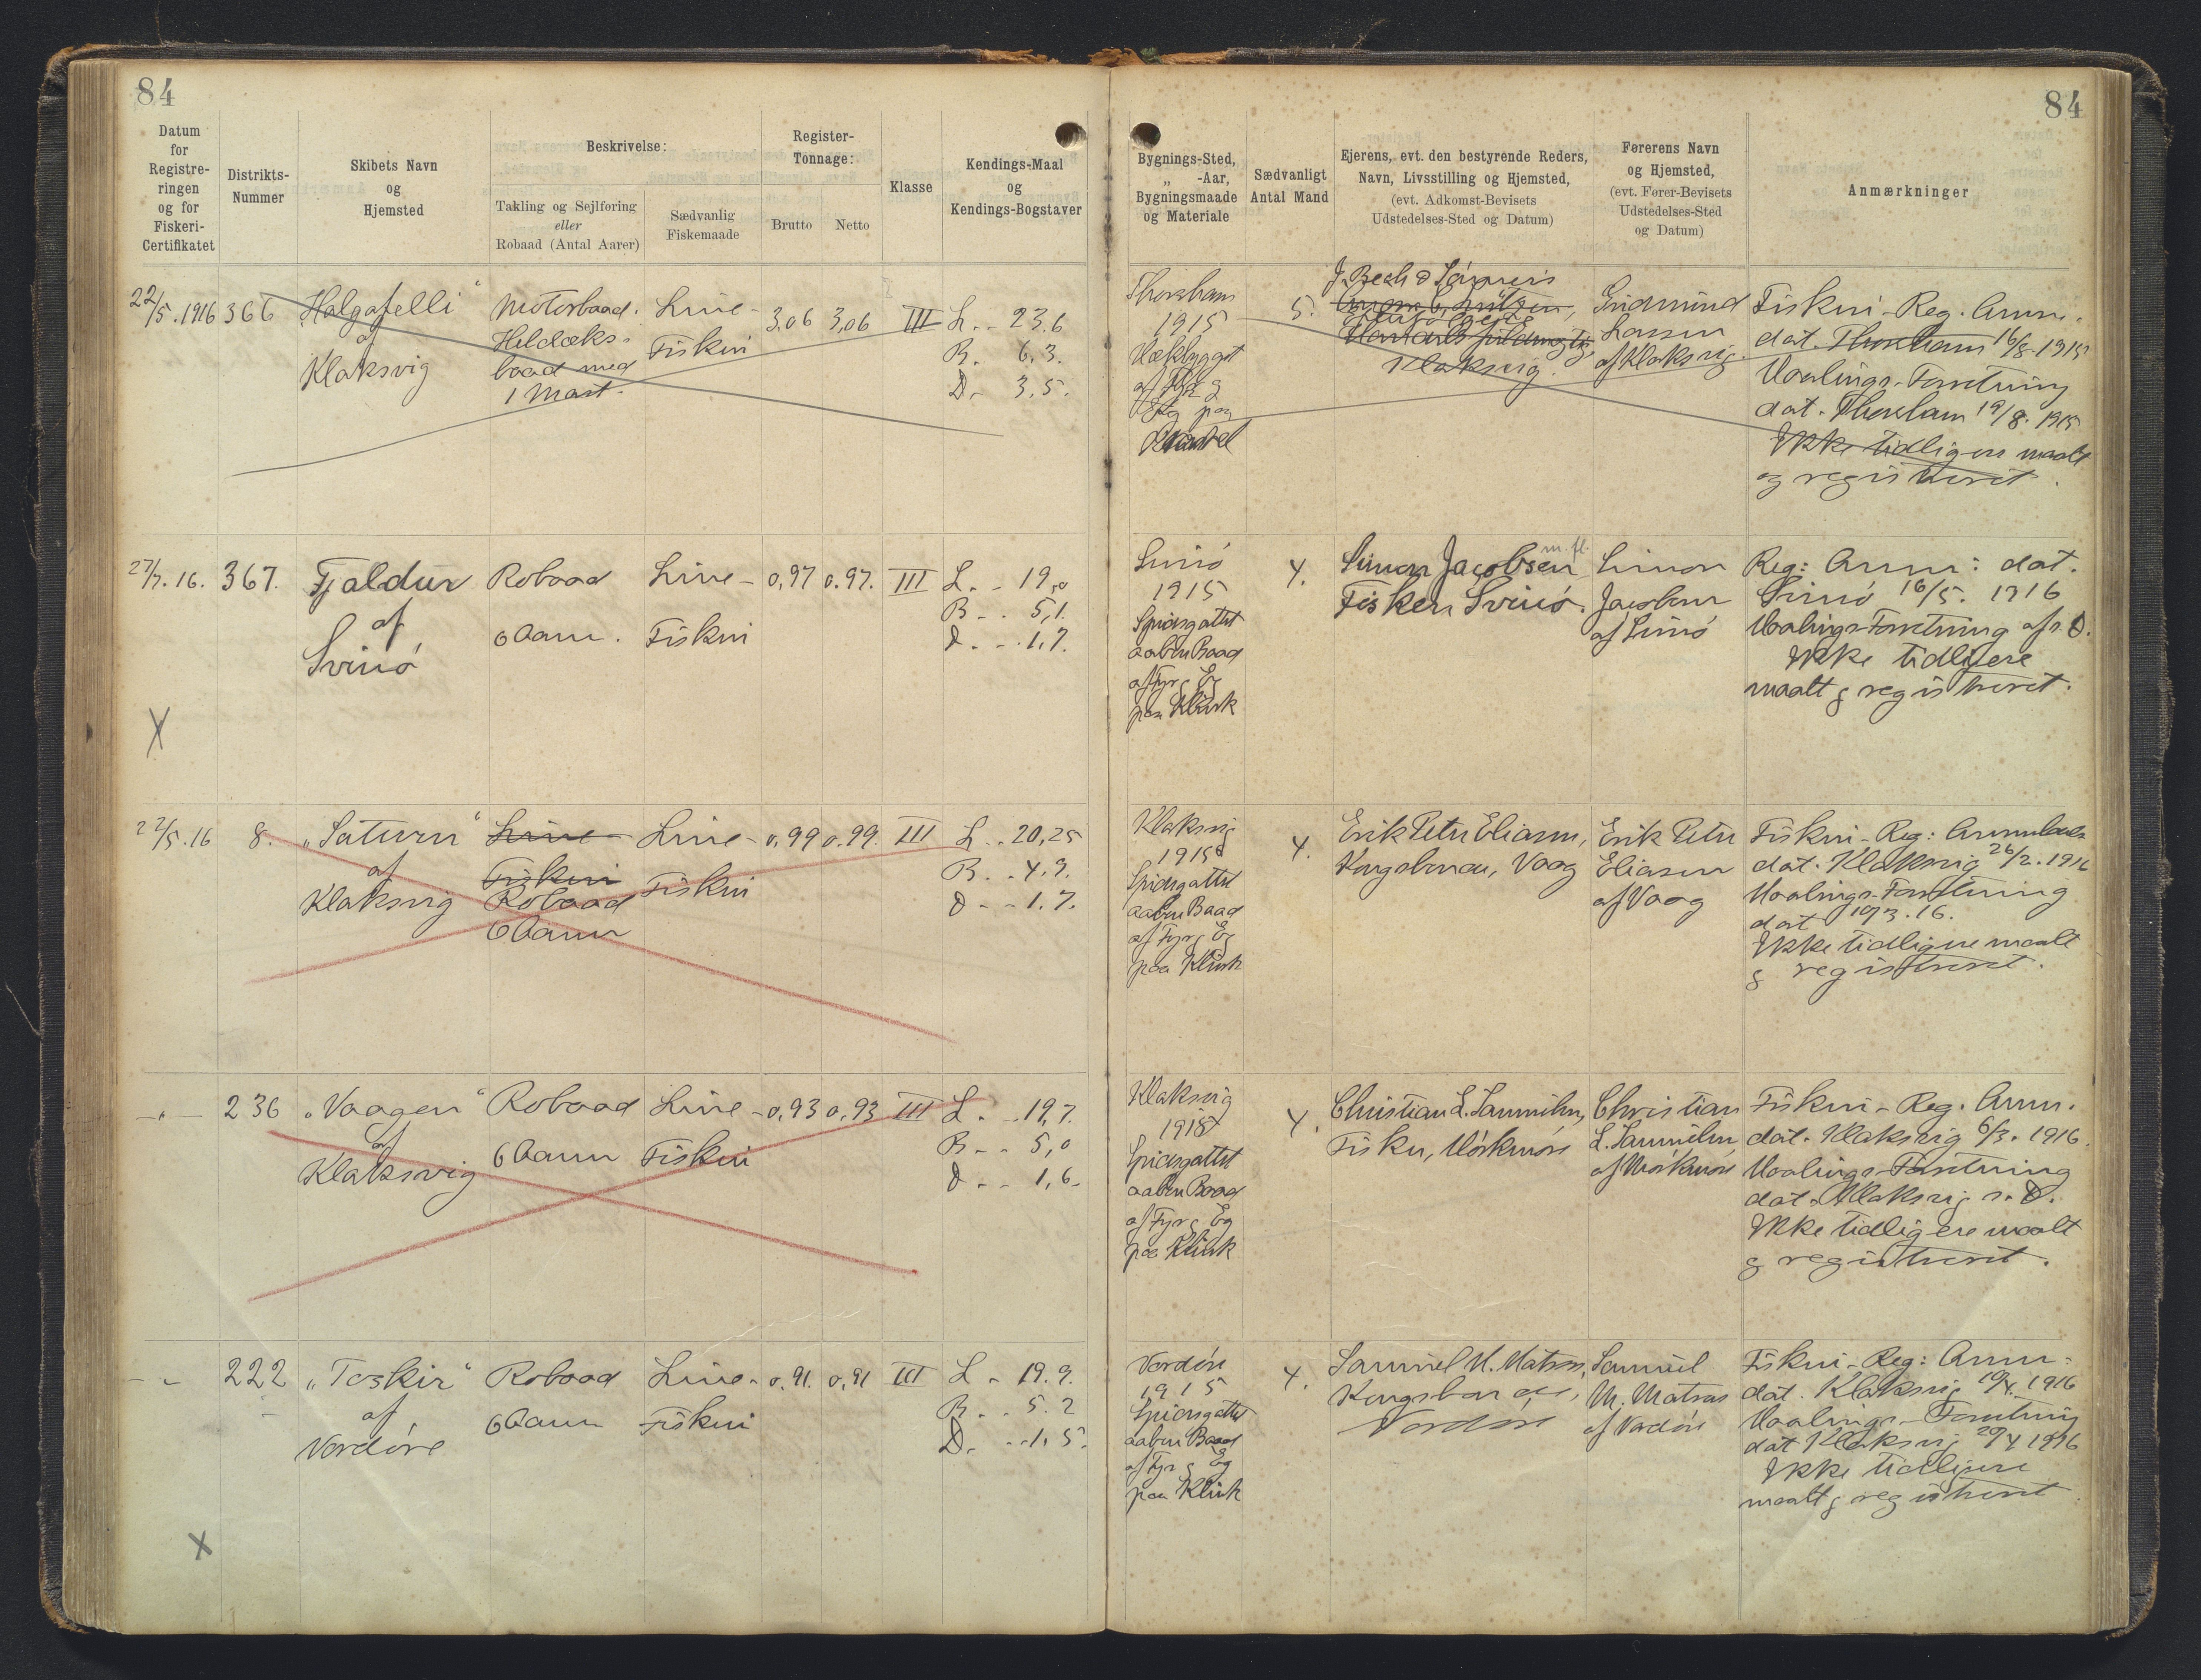 84
84
Datum
for
Registre-
ringen
og for
Fiskeri-
Certifikatet
Distrikts-
Nummer
Skibets Navn
og
Hjemsted
Beskrivelse:
Takling og Sejlføring
eller
Robaad (Antal Aarer)
Sædvanlig
Fiskemaade
Register-
Tonnage:
Brutto Netto
Klasse
Kendings-Maal
og
Kendings-Bogstaver
Bygnings-Sted,
„ -Aar,
Bygningsmaade
og Materiale
Sædvanligt
Antal Mand
Ejerens, evt. den bestyrende Reders,
Navn, Livsstilling og Hjemsted,
(evt. Adkomst-Bevisets
Udstedelses-Sted og Datum)
Førerens Navn
og Hjemsted,
(evt. Fører-Bevisets
Udstedelses-Sted
og Datum)
Anmærkninger
22/5.1916
366
"Halgafelli"
af
Klaksvig
Motorbaad.
Heldæks-
baad med
1 Mast.
Line-
Fiskeri
3,06 3,06
III
L. . 23.6
B. 6,3.
D. 3,5.
Thorshavn
1915
Hækbygget
af Fyr &
Eg paa
5.
J. Bech & Sønners
Klaksvig.
Gudmund
Lassen
af Klaksvig.
Fiskeri-Reg. Anm.
dat. Thorshavn 16/8.1915
Maalings-Forretning
dat. Thorshavn 19/8.1915
Ikke tidligere maalt
og registreret.
27/7.16.
367.
Fjaldur
af
Svinö
Robaad
6 Aarer.
Line-
Fiskeri
0,97 0.97.
III
L. . 19,0
B. . 5,1.
D. . 1,7.
Svinö
1915
Spidsgattet
aaben Baad
af Fyr & Eg
paa Klink
4.
Simon Jacobsen m. fl.
Fisker Svinö.
Simon
Jacobsen
af Svinö
Reg: Anm: dat.
Svinö 16/5. 1916
Maalings-Forretning af s. D.
Ikke tidligere
maalt & registreret.
X
22/5.16
8.
"Saturn"
af
Klaksvig
Line
Fiskeri
Robaad
6 Aarer
Line-
Fiskeri
0,99 0.99.
III
L. . 20,25
B. . 4,9.
D. . 1.7.
Klaksvig
1915
Spidsgattet
aaben Baad
af Fyr & Eg
paa Klink
4.
Erik Peter Eliasen,
Kongsbonde, Vaag
Erik Peter
Eliasen
af Vaag
Fiskeri-Reg: Anmeldelse
dat. Klaksvig 26/2.1916
Maalings-Forretning
dat 19/3.16.
Ikke tidligere maalt
& registreret.
-„-
236
"Vaagen"
af
Klaksvig
Robaad
6 Aarer
Line-
Fiskeri
0,93 0,93
III
L. . 19,7.
B. . 5,0
D. . 1,6.
Klaksvig
1915
Spidsgattet
aaben Baad
af Fyr & Eg
paa Klink
4.
Christian L. Samuelsen,
Fisker, Mörkmöre
Christian
L. Samuelsen
af Mörkmöre
Fiskeri-Reg. Anm.
dat. Klaksvig 6/3. 1916.
Maalings-Forretning
dat. Klaksvig s. D.
Ikke tidligere maalt
& registreret.
- „
222
"Teskir"
af
Nordöre
Robaad
6 Aarer
Line-
Fiskeri
0,91. 0,91
III
L. 19.9.
B. . 5.2
D. . 1,5.
Nordöre
1915
Spidsgattet
aaben Baad
af Fyr & Eg
paa Klink
4.
Samuel M. Matras,
Kongsbonde,
Nordöre
Samuel
M. Matras
af Nordöre
Fiskeri-Reg: Anm:
dat. Klaksvig 10/4. 1916
Maalings-Forretning
dat Klaksvig 20/4 1916
Ikke tidligere
maalt & registreret
X